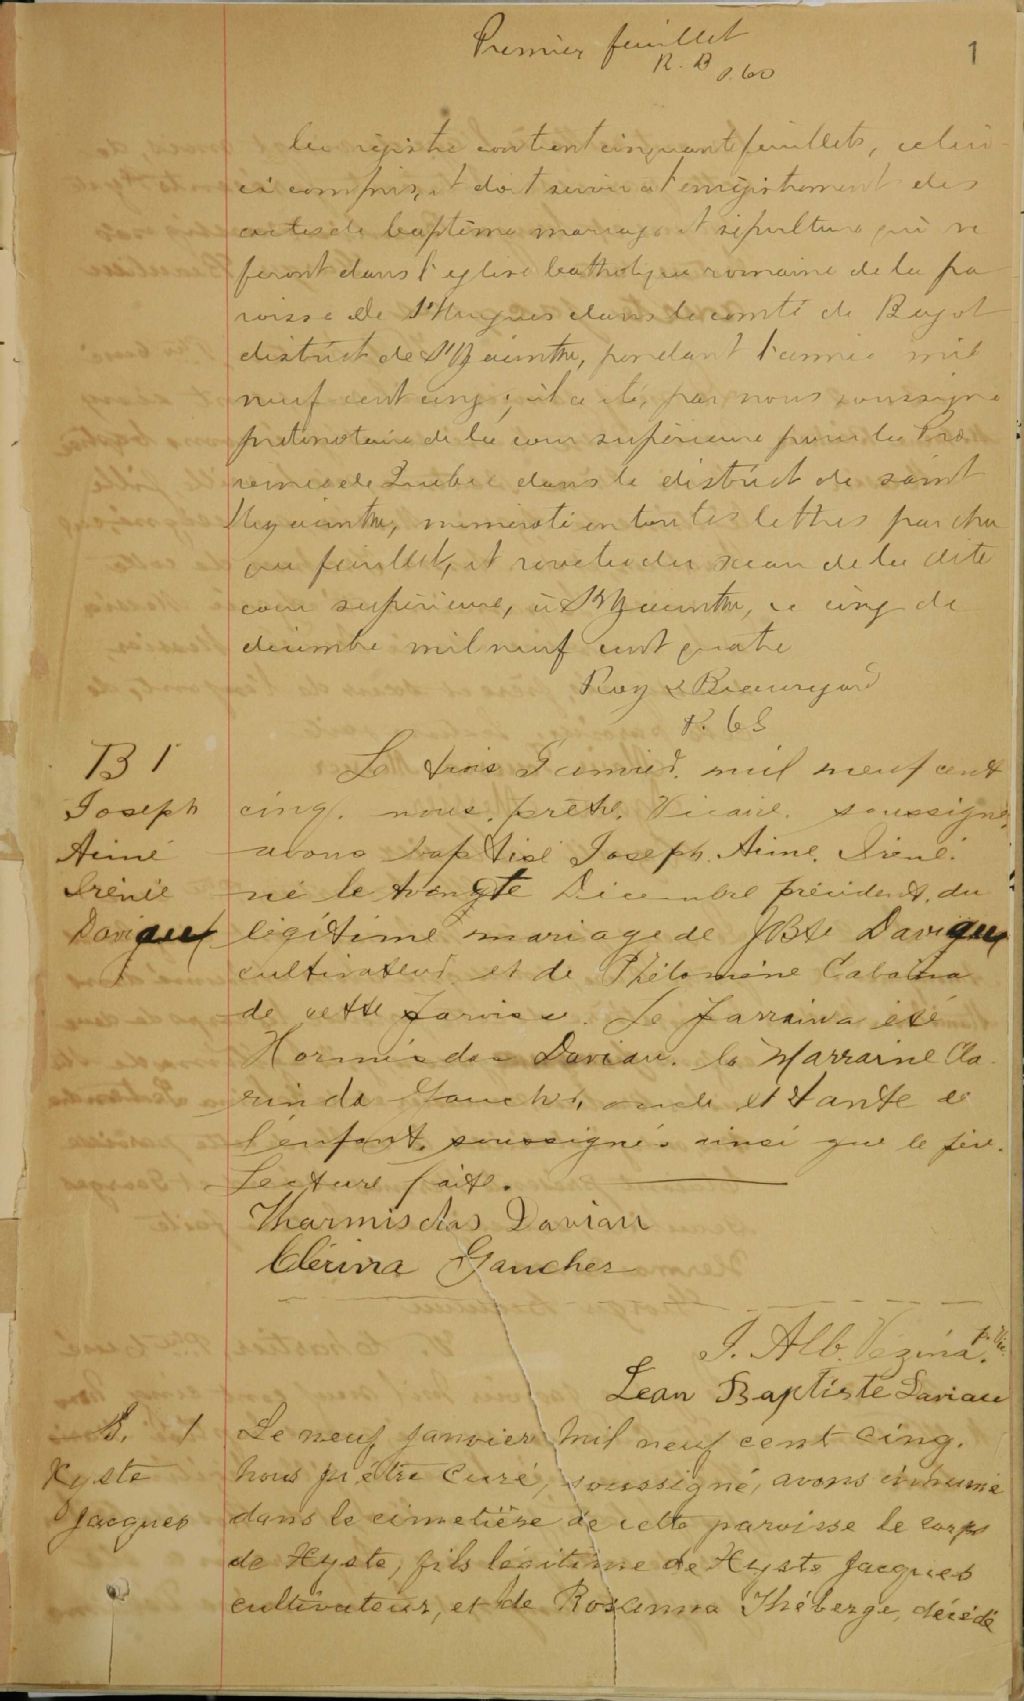 Premier feuillet
1
R. B
Ce registre contient cinquante feuillets, celui
ci compris, et doit servir à l'enregistrement des
actes de baptême mariage et sépulture qui se
feront dans l'eglise Catholique romaine de la pa
roisse de St Hugues dans le comté de Bagot
district de St Hyacinthe, pendant l'année mil
neuf cent cinq; il a été, par nous soussigné
protonotaire de la cour supérieure pour la Pro
vince de Québec dans le district de saint
Hyacinthe, numéroté en toutes lettres par cha
que feuillet, et revetu du sceau de la dite
cour supérieure, à St Hyacinthe, ce cinq de
décembre mil neuf cent quatre
Roy & Beauregard
P. C S
B 1
Joseph
Aimé
Irénée
Davignon
Le trois Janvier. mil neuf cent
cinq. nous. prêtre. Vicaire. soussigné,
avons baptisé Joseph. Aimé. Iréné.
né le trente Décembre précédent. du
légitime mariage de JBte
cultivateur et de Philomène Cabana
de cette paroisse. Le parrain a été
Hormisdas Daviau. la Marraine Cla
rinda Gaucher, oncle et tante de
l'enfant. soussignés ainsi que le père.
Lecture faite.
Tharmisdas Daviau
Clérina Gaucher
J. Alb. Vézina. Ptr. Vic.
Jean Baptiste Daviau
S. 1
Xyste
Jacques
Le neuf janvier mil neuf cent cinq.
nous prêtre curé, soussigné, avons inhumé
dans le cimetière de cette paroisse le corps
de Xyste, fils légitime de Xyste Jacques
cultivateur, et de Rosanna Théberge, décédé